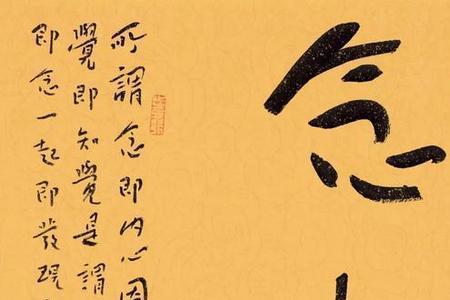 念
所謂念即內心因
覺即知覺是謂
即念一起即發現